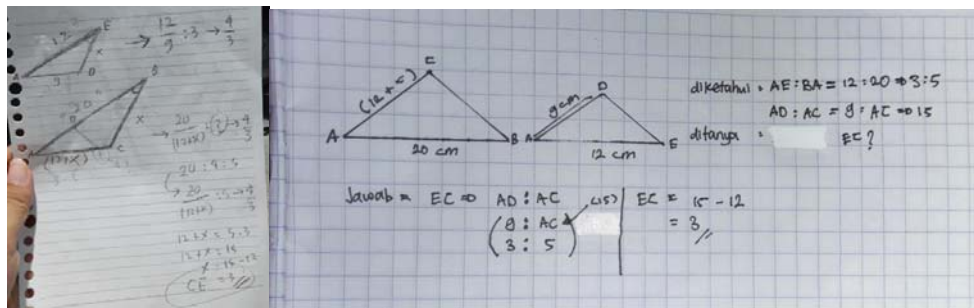 12
E
→ 12/9 : 3 → 4/3
x
A
9
D
B
20
x
A
(12+x)
C
→ 20/(12+x)
4/3
20 : 4 = 5
→ 20/(12+x) : 5 → 4/3
12 + x = 5.3
12 + x = 15
x = 15 - 12
CE = 3
C
(12 + c)
A
B
20 cm
D
9 cm
A
E
12 cm
diketahui = AE : BA = 12 : 20 ⇒ 3 : 5
AD : AC = 9 : AC ⇒ 15
ditanya = EC ?
Jawab = EC ⇒ AD : AC
(9 : AC (15)
3 : 5)
EC = 15 - 12
= 3 //